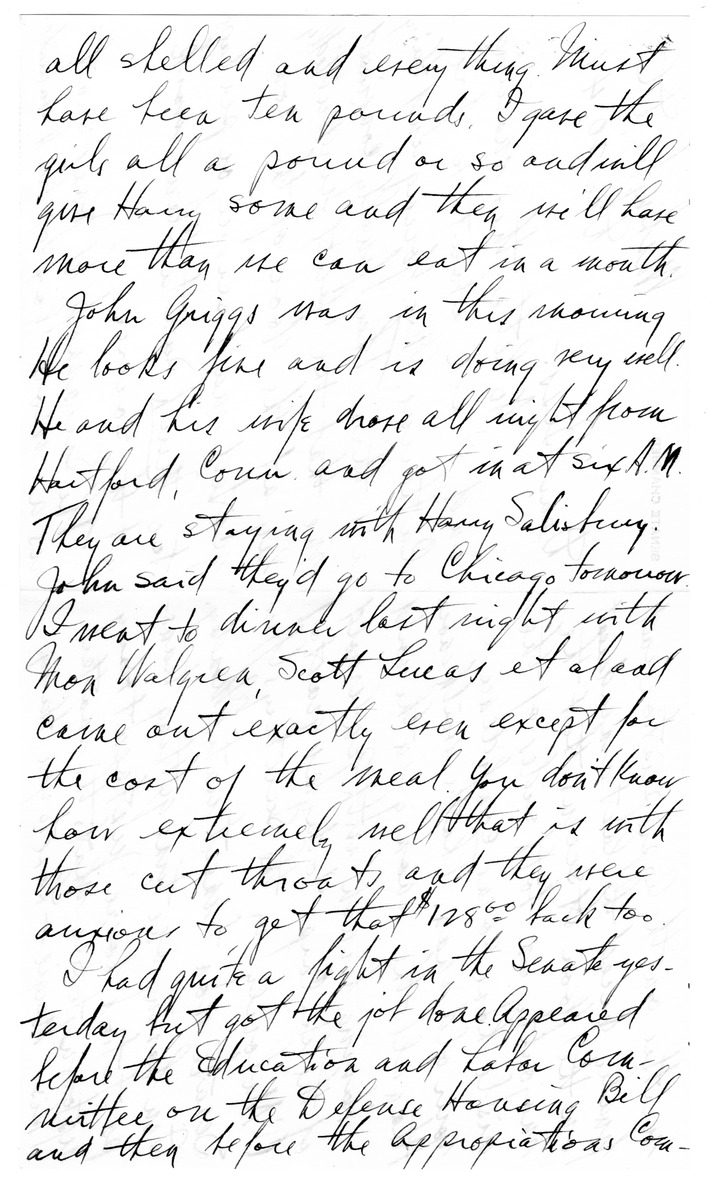 all shelled and everything. Must
have been ten pounds. I gave the
girls all a pound or so and will
give Harry some and then we'll have
more than we can eat in a month.
John Griggs was in this morning
He looks fine and is doing very well.
He and his wife drove all night from
Hartford, Conn. and got in at six A.M.
They are staying with Harry Salisbury.
John said they'd go to Chicago tomorrow.
I went to dinner last night with
Mon Walgren, Scott Lucas et al and
came out exactly even except for
the cost of the meal. You don't know
how extremely well that is with
those cut throats and they were
anxious to get that $128 00 back too.
I had quite a fight in the Senate yes-
terday but got the job done. Appeared
before the Education and Labor Com-
mittee on the Defense Housing Bill
and then before the Appropiations Com-